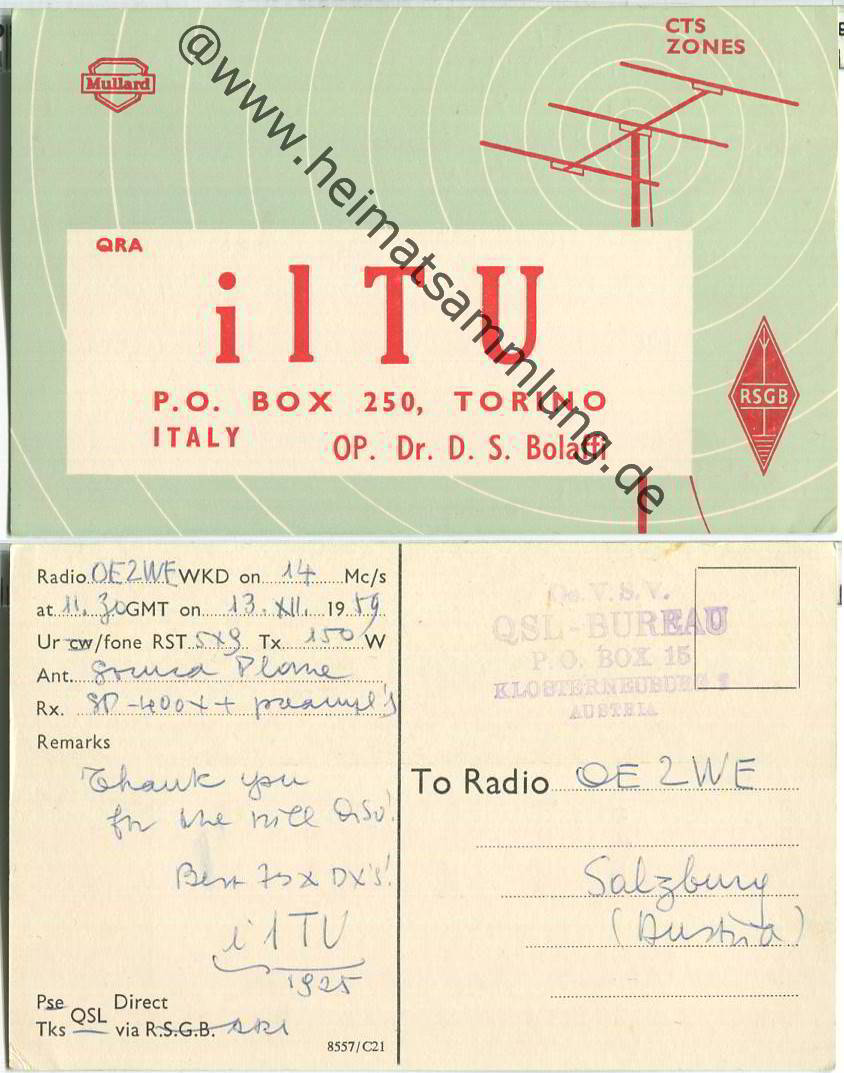 CTS
ZONES
Mullard
@www.heimatsammlung.de
QRA
i 1 T U
P.O. BOX 250, TORINO
ITALY
OP. Dr. D. S. Bolaffi
RSGB
Radio OE2WE WKD on 14 Mc/s
at 11.30 GMT on 13. XII. 1959
Ur cw/fone RST 5x9 Tx 150 W
Ant. Plane
Rx. SP-400X +
Remarks
Thank you
for the QSO!
Best 73 x DX's!
i 1 TU
1925
Pse QSL Direct
Tks via R.S.G.B.
8557/C21
Oe.V.S.V.
QSL-BUREAU
P.O. BOX 15
KLOSTERNEUBURG
AUSTRIA
To Radio OE2WE
Salzburg
(Austria)